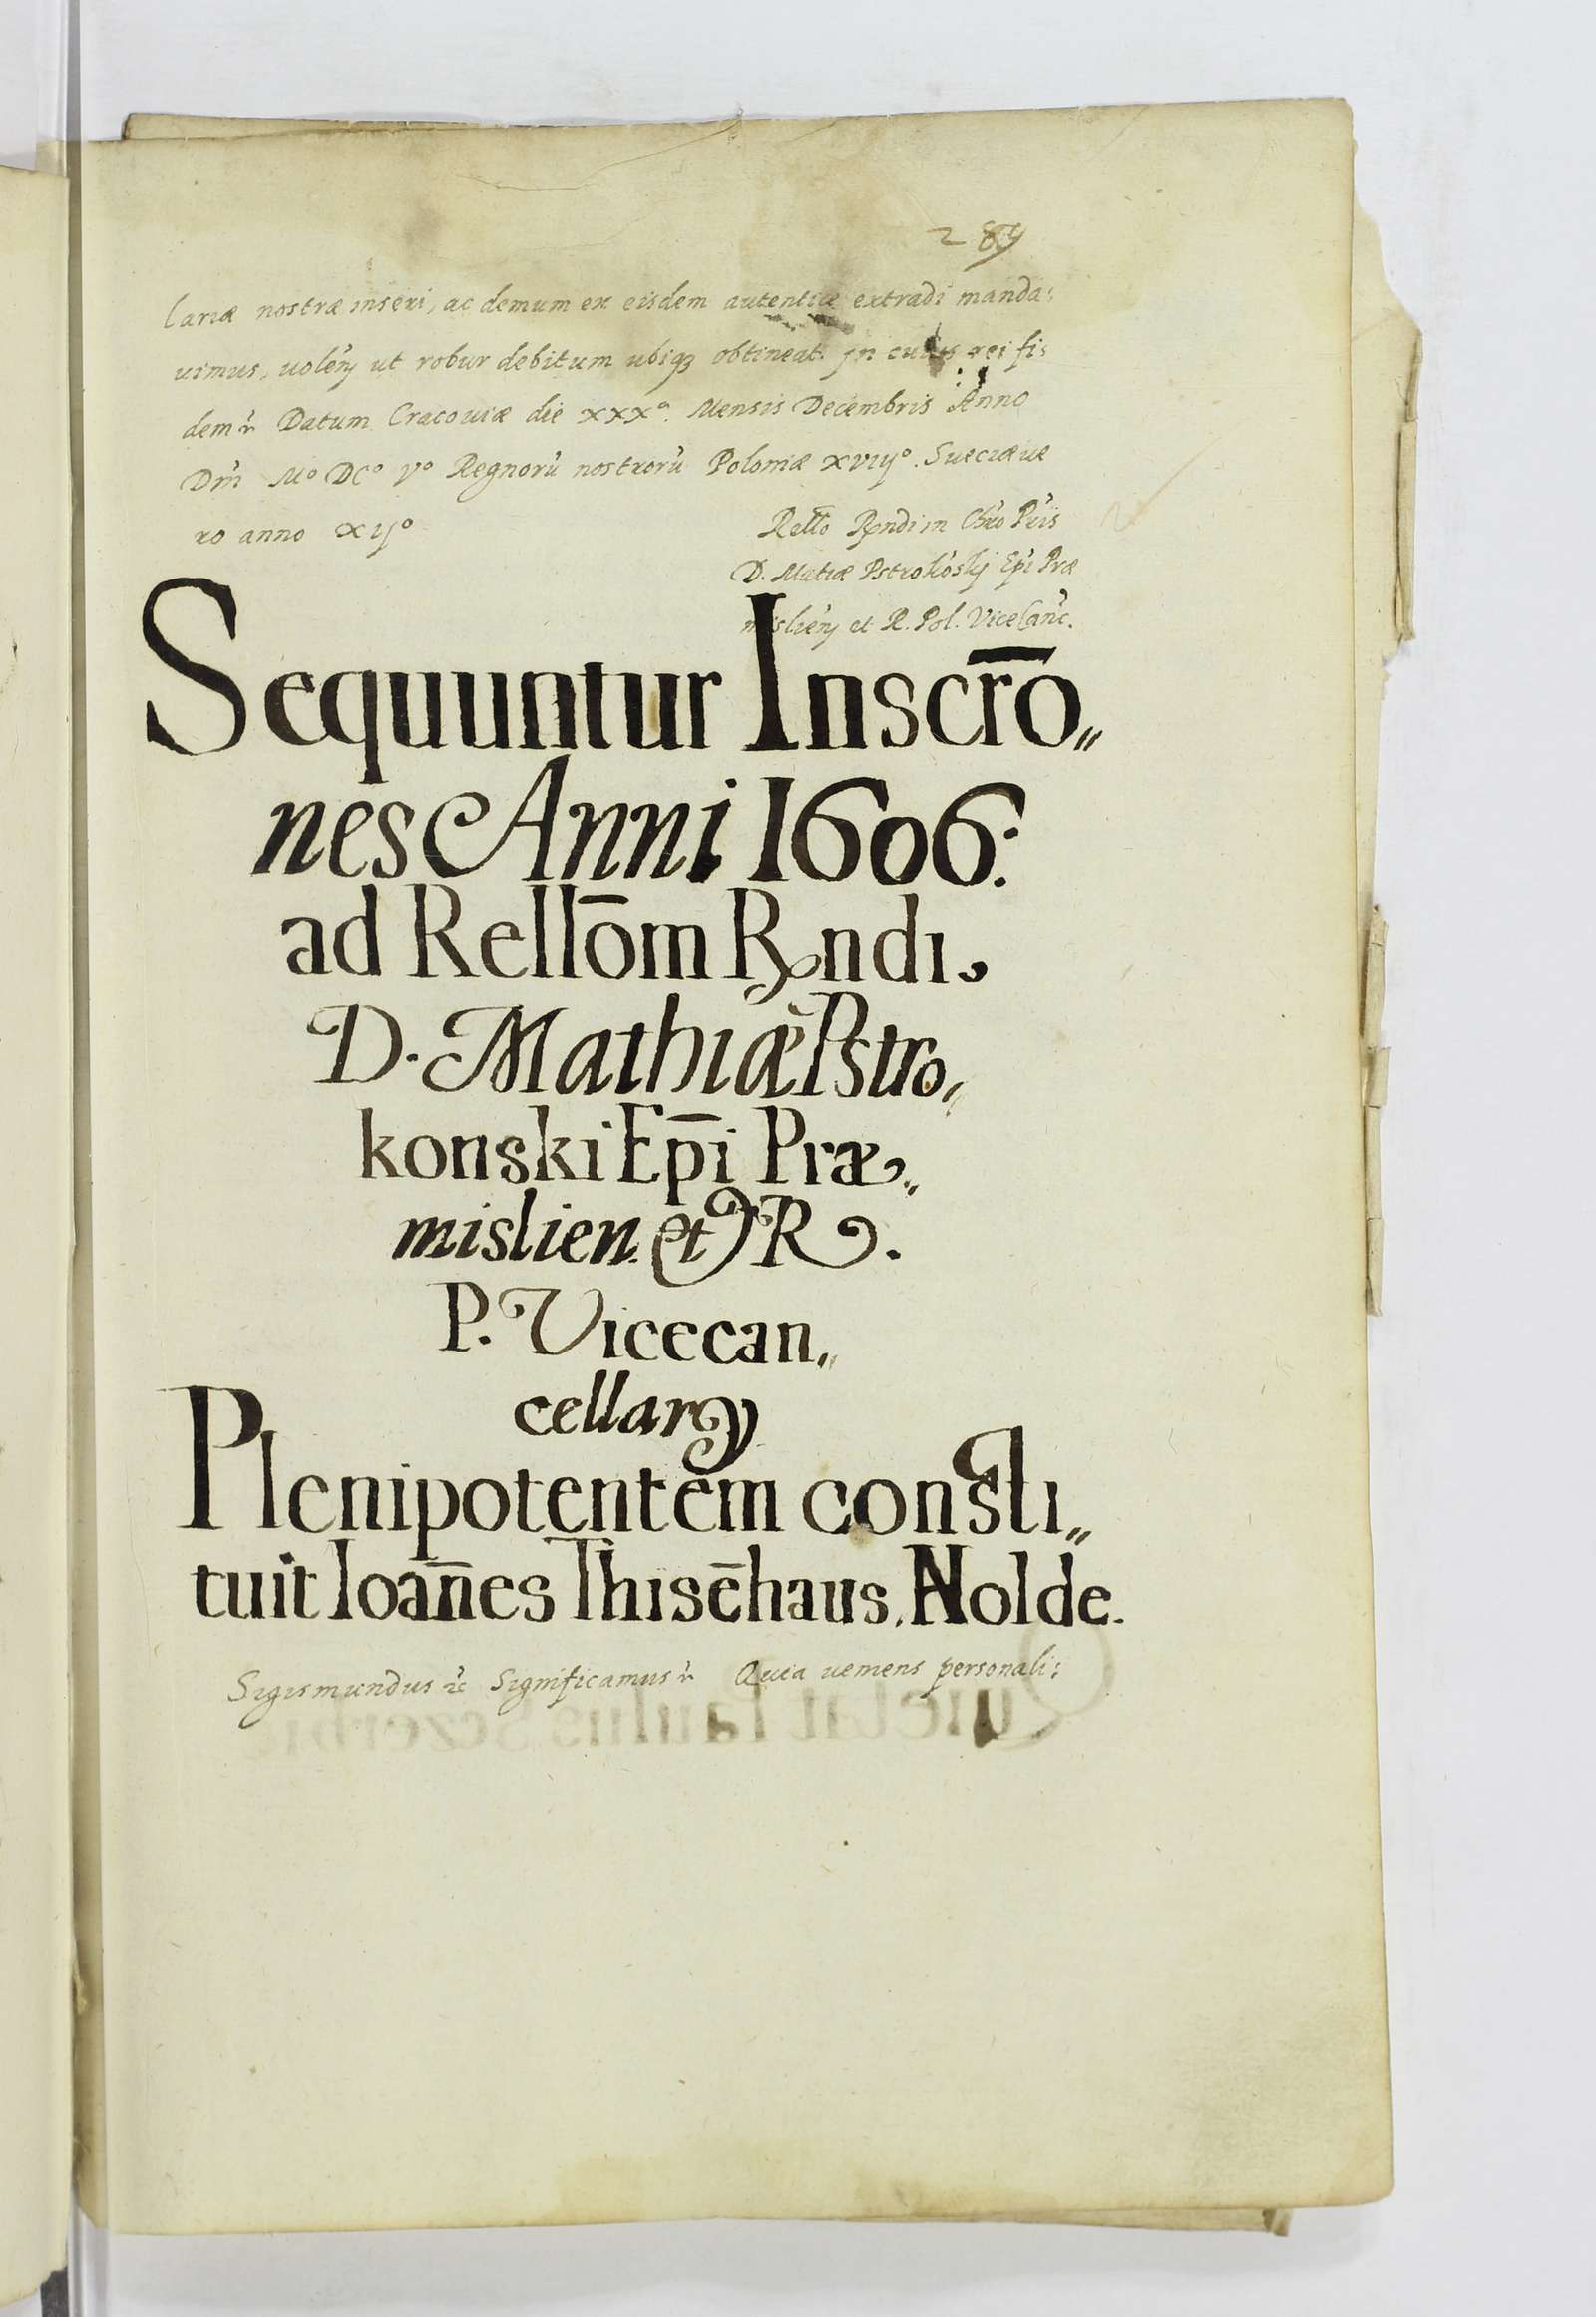 289
lariæ nostræ inseri, ac demum ex eisdem autentice extradi manda:
uimus, uolen̄ ut robur debitum ubiqꝫ obtineat. In cuius rei fi:
dem ꝛ̃ Datum Cracouiæ die xxxᵒ. Mensis Decembris Anno
Dm̃ Mᵒ DCᵒ Vᵒ Regnorũ nostrorũ Poloniæ xviijᵒ. Sueciæ ue
ro anno xijᵒ
Rello Rndi in Chr̃o Pr̃is
D. Matiæ Pstrokõskj Ep̃i Præ
mislien̄ et R. Pol. Vicecanc̃.
Sequuntur Inscrō„
nes Anni 1606.
ad Rellōm Rndi.
D. Mathiæ Pstro„
konski Ep̄i Præ„
mislien. et R.
P. Vicecan„
cellarij
Plenipotentem consti„
tuit Ioan̄es Thisēhaus. Nolde.
Sigismundus ꝛc̃ Significamus ꝛ̃ Quia ueniens personali: